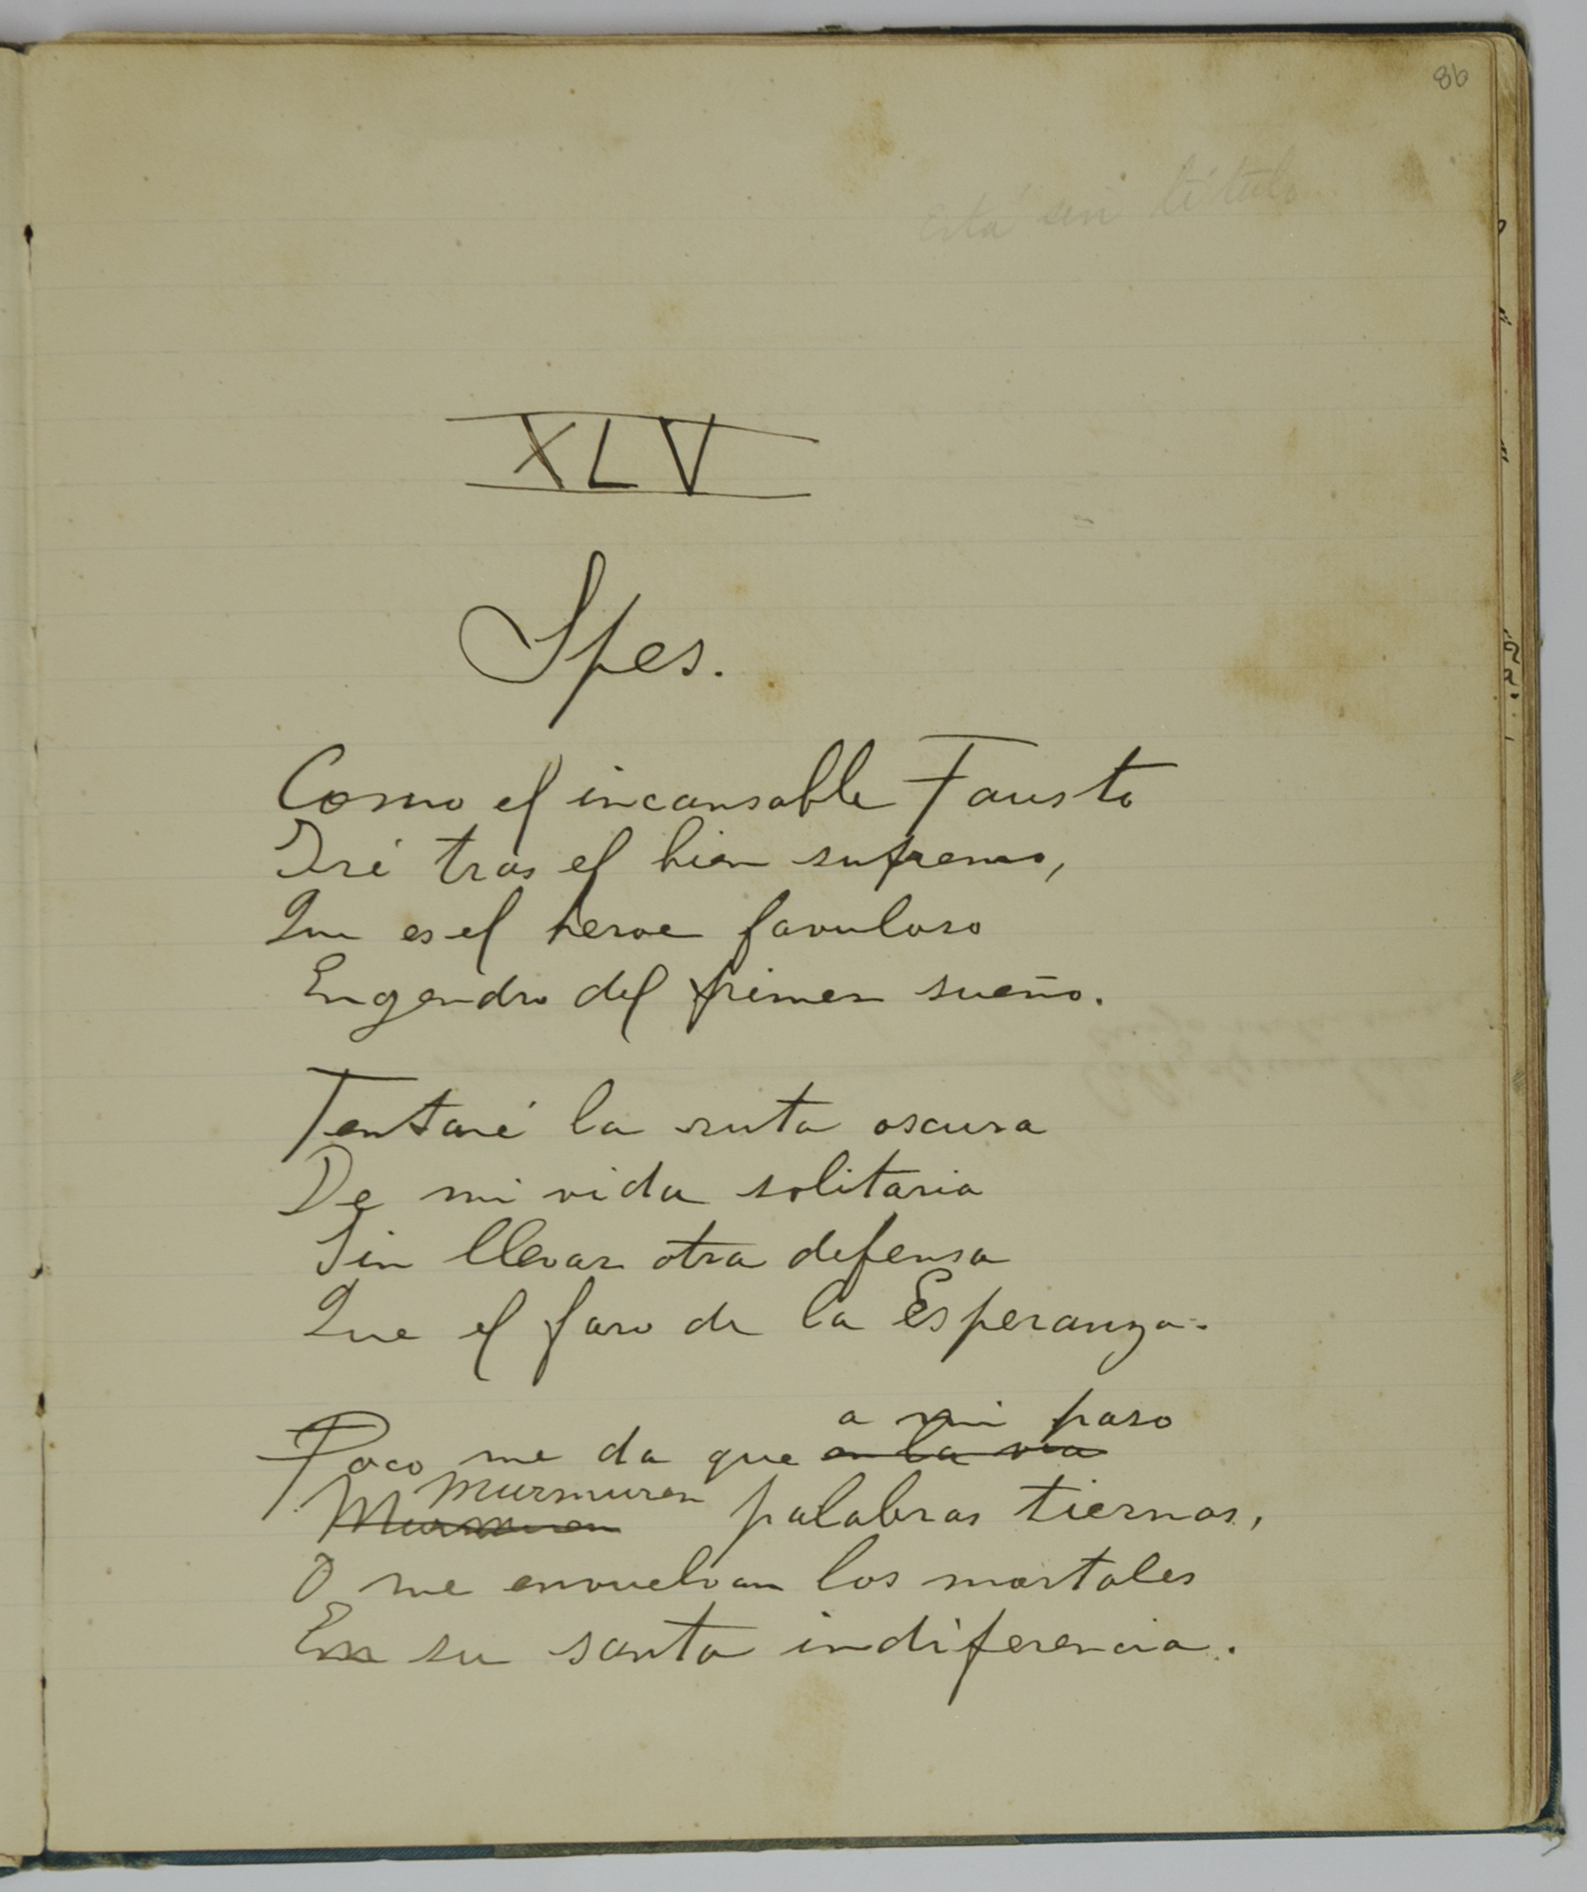 86
Está sin título
XLV
Spes.
Como el incansable Fausto
Iré tras el bien supremo,
Que es el heroe favuloso
Engendro del primer sueño.
Tentaré la ruta oscura
De mi vida solitaria
Sin llevar otra defensa
Que el faro de la Esperanza.
a mi paso
Poco me da que en la via
Murmuren
Murmuren palabras tiernas,
O me envuelvan los mortales
En su santa indiferencia.